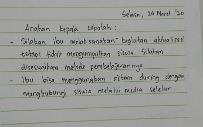 Selasa, 24 Maret '20
Arahan kepala sekolah :
- Silakan ibu melaksanakan kegiatan
tidak mengumpulkan siswa. Silakan
disesuaikan metode pembelajarannya
- Ibu bisa menggunakan sistem daring dengan
menghubungi siswa melalui media seluler